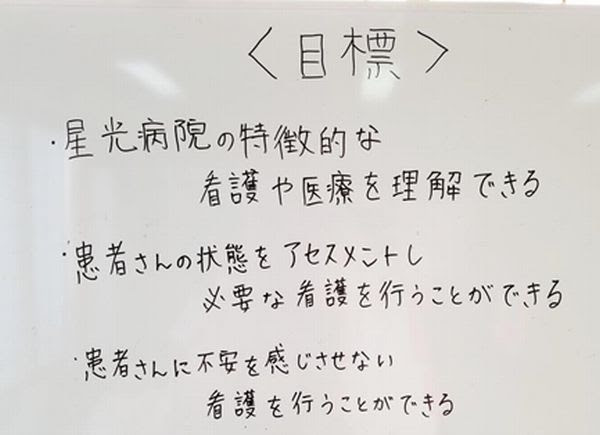 〈目標〉
・星光病院の特徴的な
看護や医療を理解できる
・患者さんの状態をアセスメントし
必要な看護を行うことができる
・患者さんに不安を感じさせない
看護を行うことができる